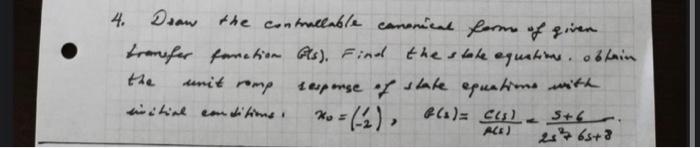 4. Draw the controllable canonical form of given
transfer function G(s). Find the state equations. obtain
the unit ramp response of state equations with
initial conditions. x₀ = (1 -2), G(s) = C(s)/R(s) = s+6/2s²+6s+8.